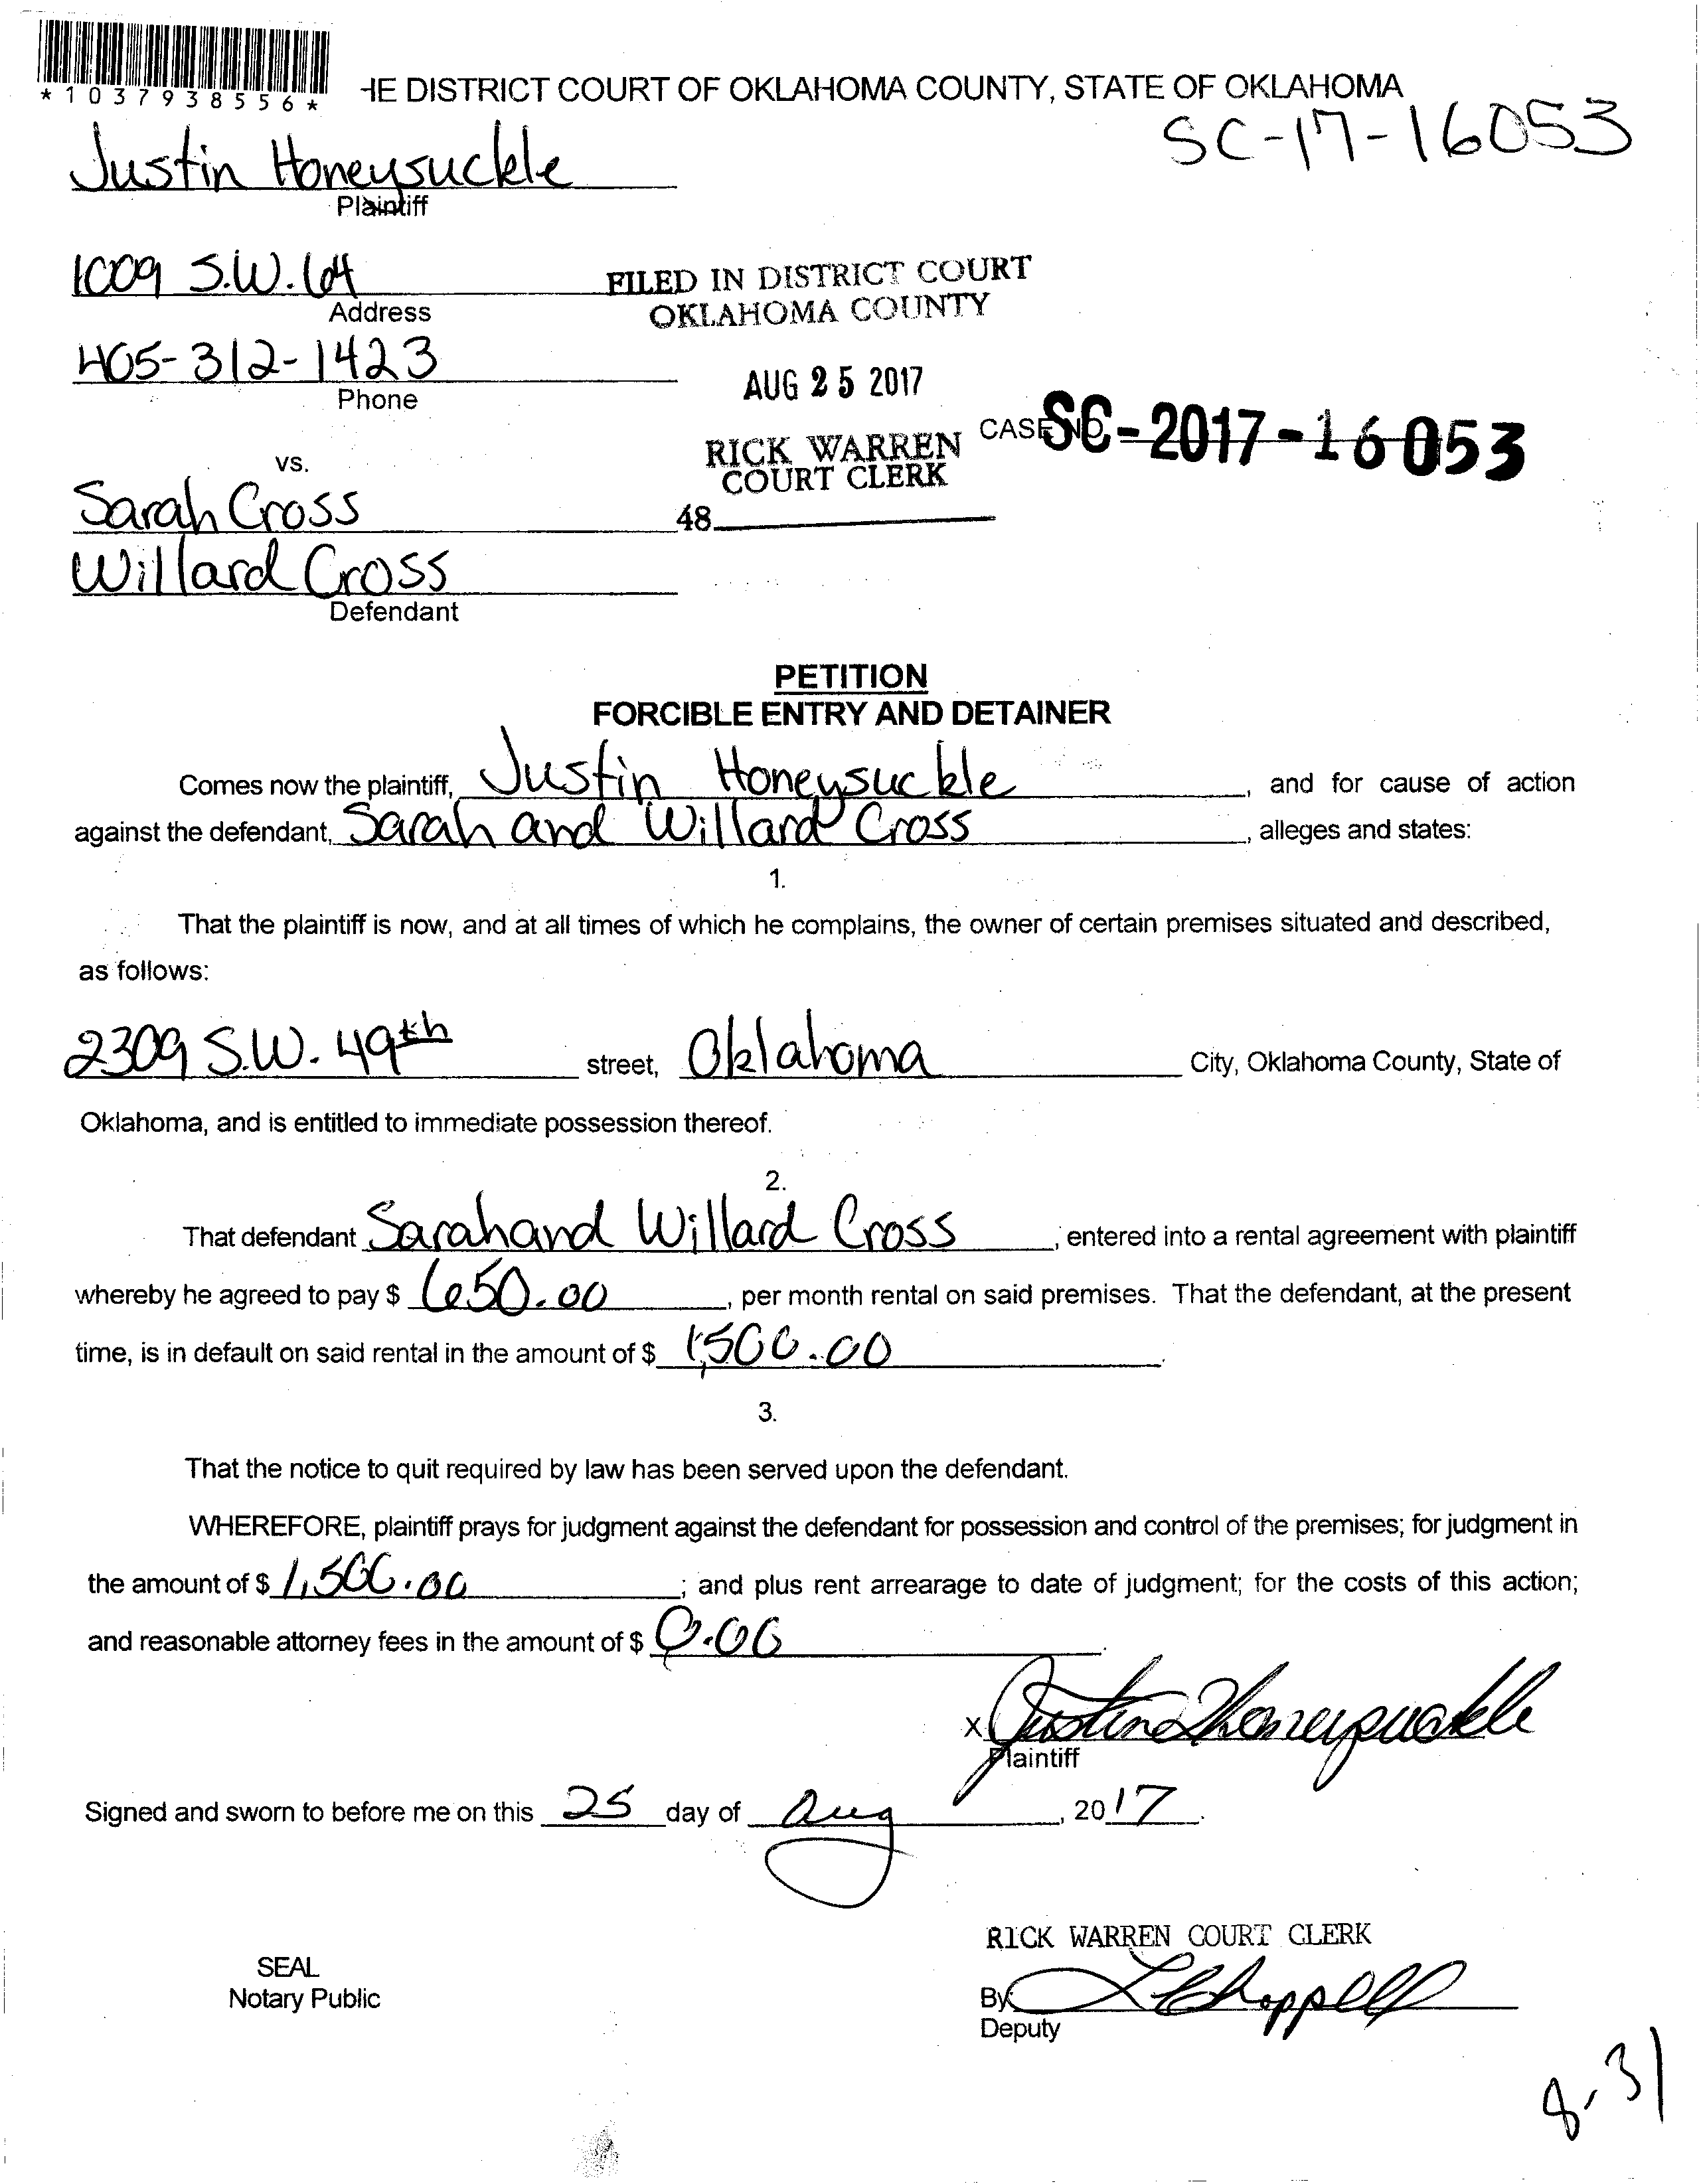 *1037938556*
HE DISTRICT COURT OF OKLAHOMA COUNTY, STATE OF OKLAHOMA
SC-17-16053
Justin Honeysuckle
Plaintiff
1009 S.W. 64
Address
FILED IN DISTRICT COURT
OKLAHOMA COUNTY
405-312-1423
Phone
AUG 25 2017
RICK WARREN
COURT CLERK
CASE NO. SC-2017-16053
vs.
48
Sarah Cross
Willard Cross
Defendant
PETITION
FORCIBLE ENTRY AND DETAINER
Comes now the plaintiff, Justin Honeysuckle, and for cause of action
against the defendant, Sarah and Willard Cross, alleges and states:
1.
That the plaintiff is now, and at all times of which he complains, the owner of certain premises situated and described,
as follows:
2309 S.W. 49th street, Oklahoma City, Oklahoma County, State of
Oklahoma, and is entitled to immediate possession thereof.
2.
That defendant Sarah and Willard Cross, entered into a rental agreement with plaintiff
whereby he agreed to pay $ 650.00, per month rental on said premises. That the defendant, at the present
time, is in default on said rental in the amount of $ 1,500.00.
3.
That the notice to quit required by law has been served upon the defendant.
WHEREFORE, plaintiff prays for judgment against the defendant for possession and control of the premises; for judgment in
the amount of $ 1,500.00; and plus rent arrearage to date of judgment; for the costs of this action;
and reasonable attorney fees in the amount of $ 0.00.
X Justin Honeysuckle
Plaintiff
Signed and sworn to before me on this 25 day of Aug, 2017.
RICK WARREN COURT CLERK
SEAL
Notary Public
By L Chappell
Deputy
8-31